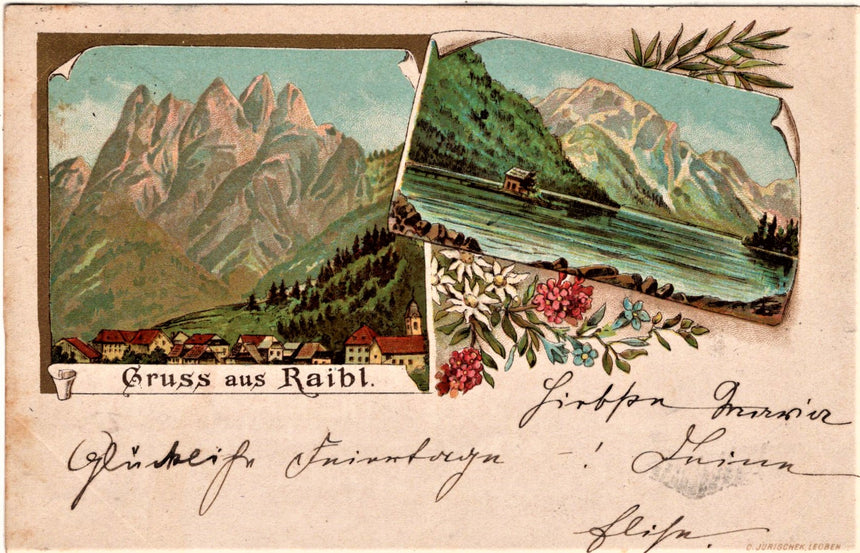 Gruss aus Raibl.
Liebste Maria
Glückliche Feiertage – ! Deine
Elise.
C. JURISCHEK, LEOBEN